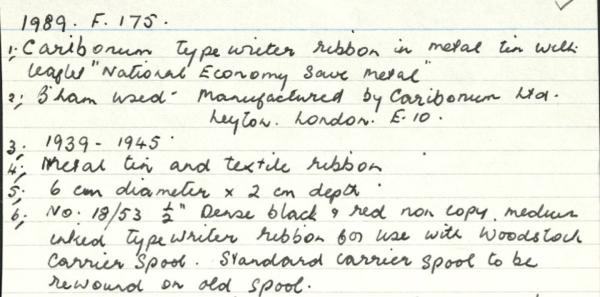 1989. F. 175.
1; Caribonum typewriter ribbon in metal tin with
leaflet "National Economy Save Metal"
2; B'ham used - Manufactured by Caribonum Ltd.
Leyton. London. E.10.
3; 1939 - 1945.
4; Metal tin and textile ribbon
5; 6 cm diameter x 2 cm depth.
6; No: 18/53 ½" Dense black & red non copy. medium
inked typewriter ribbon for use with Woodstock
carrier spool. Standard carrier spool to be
rewound on old spool.